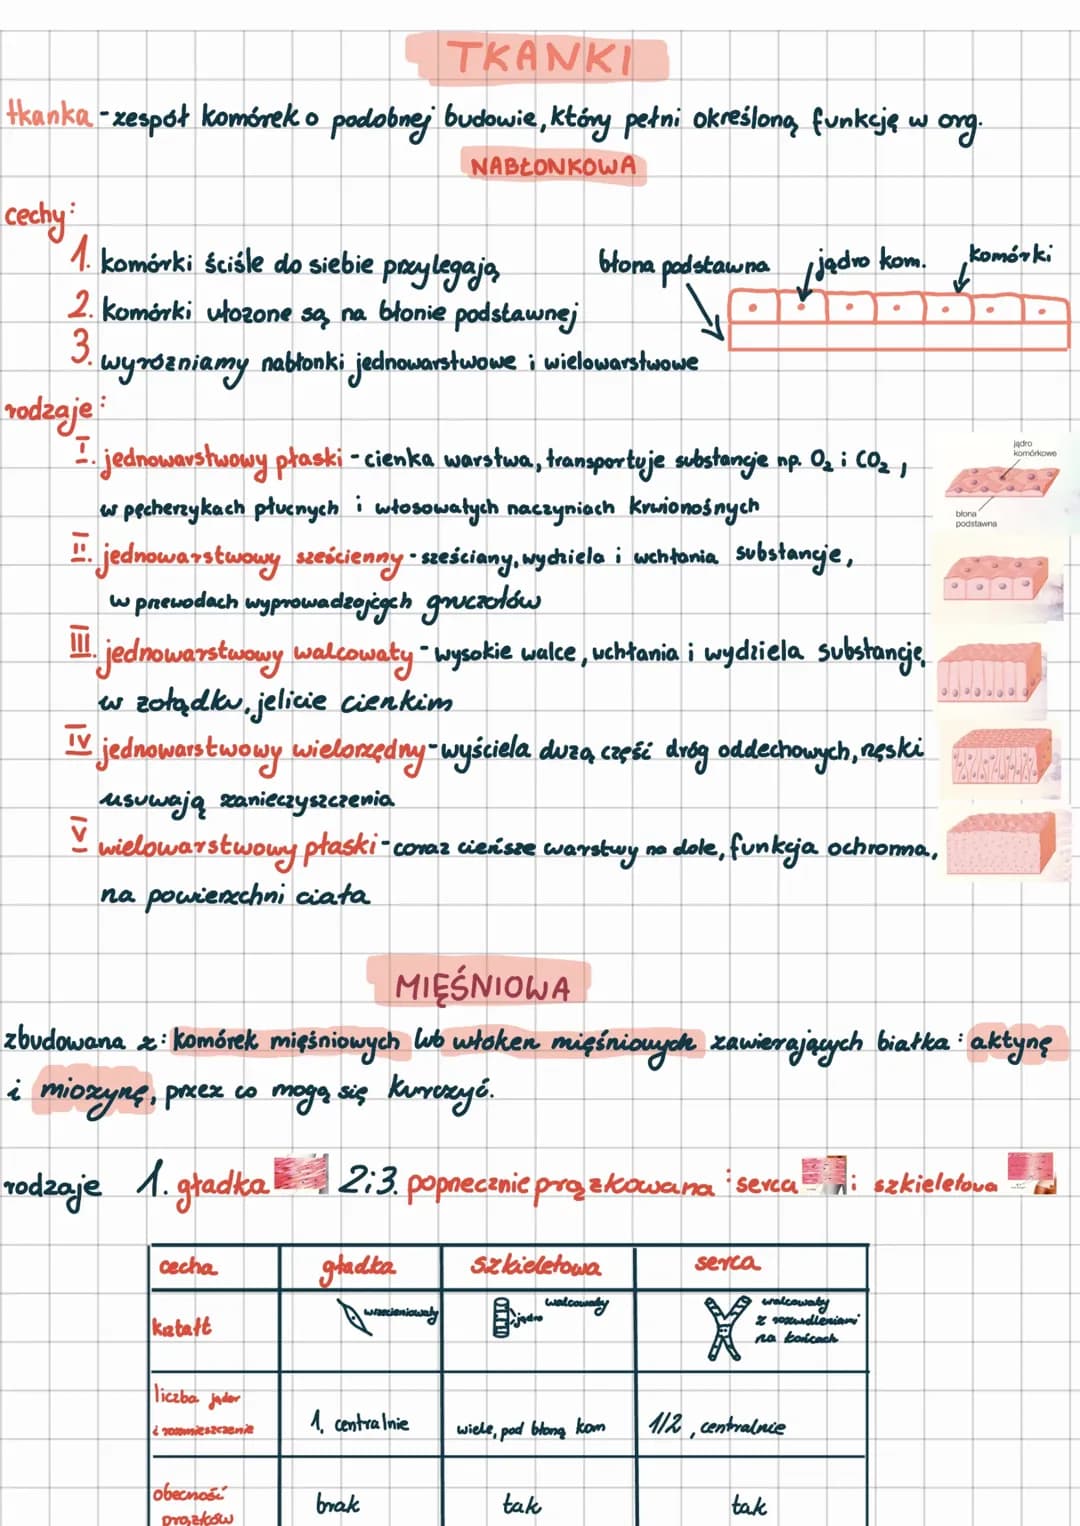 TKANKI
tkanka - zespół komórek o podobnej budowie, który pełni określoną funkcję w org.
NABŁONKOWA
cechy:
1. komórki ściśle do siebie przylegają
2. komórki ułożone są na błonie podstawnej
3. wyróżniamy nabłonki jednowarstwowe i wielowarstwowe
błona podstawna
jądro kom.
komórki
rodzaje:
I. jednowarstwowy płaski - cienka warstwa, transportuje substancje np. O₂ i CO₂,
w pęcherzykach płucnych i włosowatych naczyniach krwionośnych
jądro
komórkowe
błona
podstawna
II. jednowarstwowy sześcienny - sześciany, wydziela i wchłania substancje,
w przewodach wyprowadzających gruczołów
III. jednowarstwowy walcowaty - wysokie walce, wchłania i wydziela substancje,
w żołądku, jelicie cienkim
IV jednowarstwowy wielorzędny - wyściela dużą część dróg oddechowych, rzęski
usuwają zanieczyszczenia
V wielowarstwowy płaski - coraz cieńsze warstwy na dole, funkcja ochronna,
na powierzchni ciała
MIĘŚNIOWA
zbudowana z: komórek mięśniowych lub włóken mięśniowych zawierających białka: aktynę
i miozynę, przez co mogą się kurczyć.
rodzaje 1. gładka 2i3. poprzecznie prążkowana: serca i szkieletowa
cecha gładka szkieletowa serca
kształt wrzecionowaty jądro walcowaty walcowaty
z rozwidleniami
na końcach
liczba jąder
i rozmieszczenie 1, centralnie wiele, pod błoną kom 1/2, centralnie
obecność
prążków brak tak tak